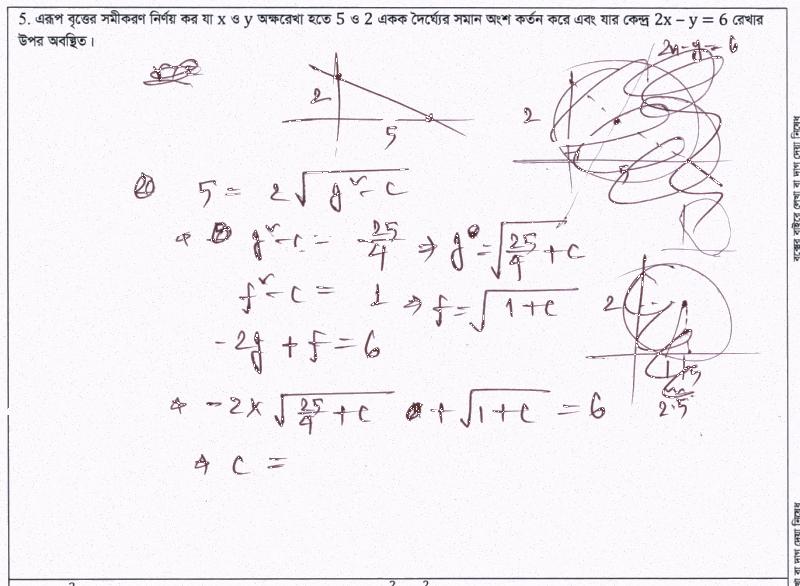 5. এরূপ বৃত্তের সমীকরণ নির্ণয় কর যা x ও y অক্ষরেখা হতে 5 ও 2 একক দৈর্ঘ্যের সমান অংশ কর্তন করে এবং যার কেন্দ্র 2x – y = 6 রেখার
উপর অবস্থিত।
2x - y = 6
2
5
2
5
5 = 2√(g² - c)
g² - c = 25/4 ⇒ g = √(25/4 + c)
f² - c = 1 ⇒ f = √(1 + c)
2
-2g + f = 6
2.5
-2 × √(25/4 + c) + √(1 + c) = 6
c =
বক্সের বাইরে লেখা বা দাগ দেয়া নিষেধ
বা দাগ দেয়া নিষেধ